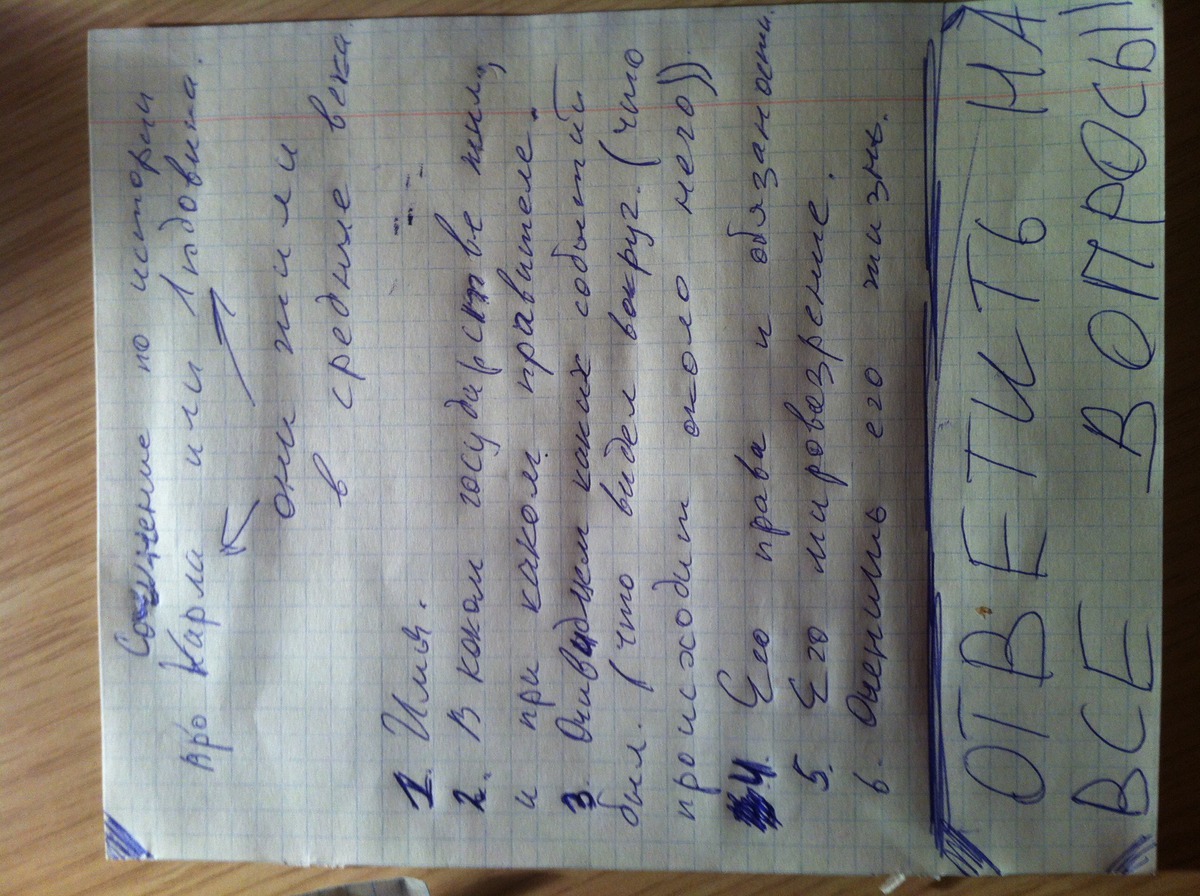 Сочинение по истории
про Карла или 1 Людовика.
они жили
в средние века
1. Имя.
2. В каком государстве жил,
и при каком правителе.
3. Очивидцем каких событий
был. (что видел вокруг. (что
происходит около него))
4. Его права и обязаности.
5. Его мировозрение.
6. Оценить его жизнь.
ОТВЕТИТЬ НА
ВСЕ ВОПРОСЫ!!